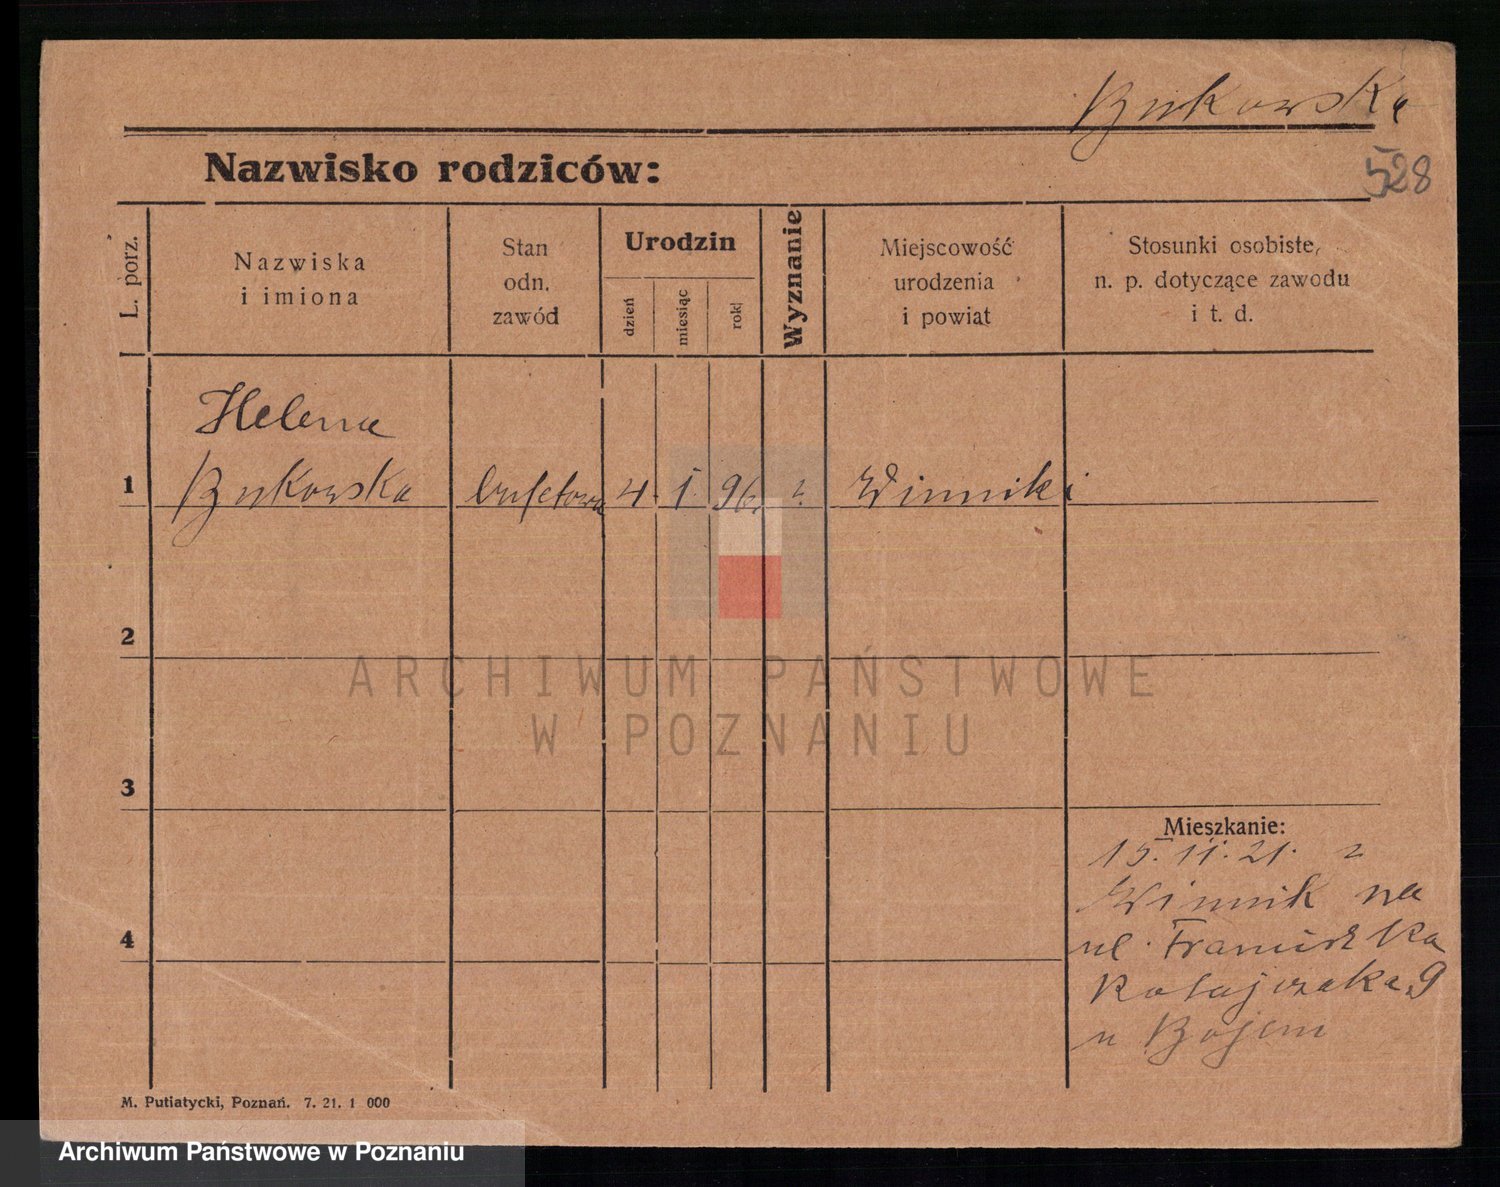 Bukowska
Nazwisko rodziców:
528
L. porz.
Nazwiska
i imiona
Stan
odn.
zawód
Urodzin
dzień
miesiąc
rok
Wyznanie
Miejscowość
urodzenia
i powiat
Stosunki osobiste,
n. p. dotyczące zawodu
i t. d.
Helena
1 Bukowska bufetowa 4. I. 96. Winniki
2
ARCHIWUM PAŃSTWOWE
W POZNANIU
3
Mieszkanie:
15. 11. 21. z
Winnik na
4
ul. Franciszka
Ratajczaka 9
u Bojem
M. Putiatycki, Poznań. 7. 21. 1 000
Archiwum Państwowe w Poznaniu